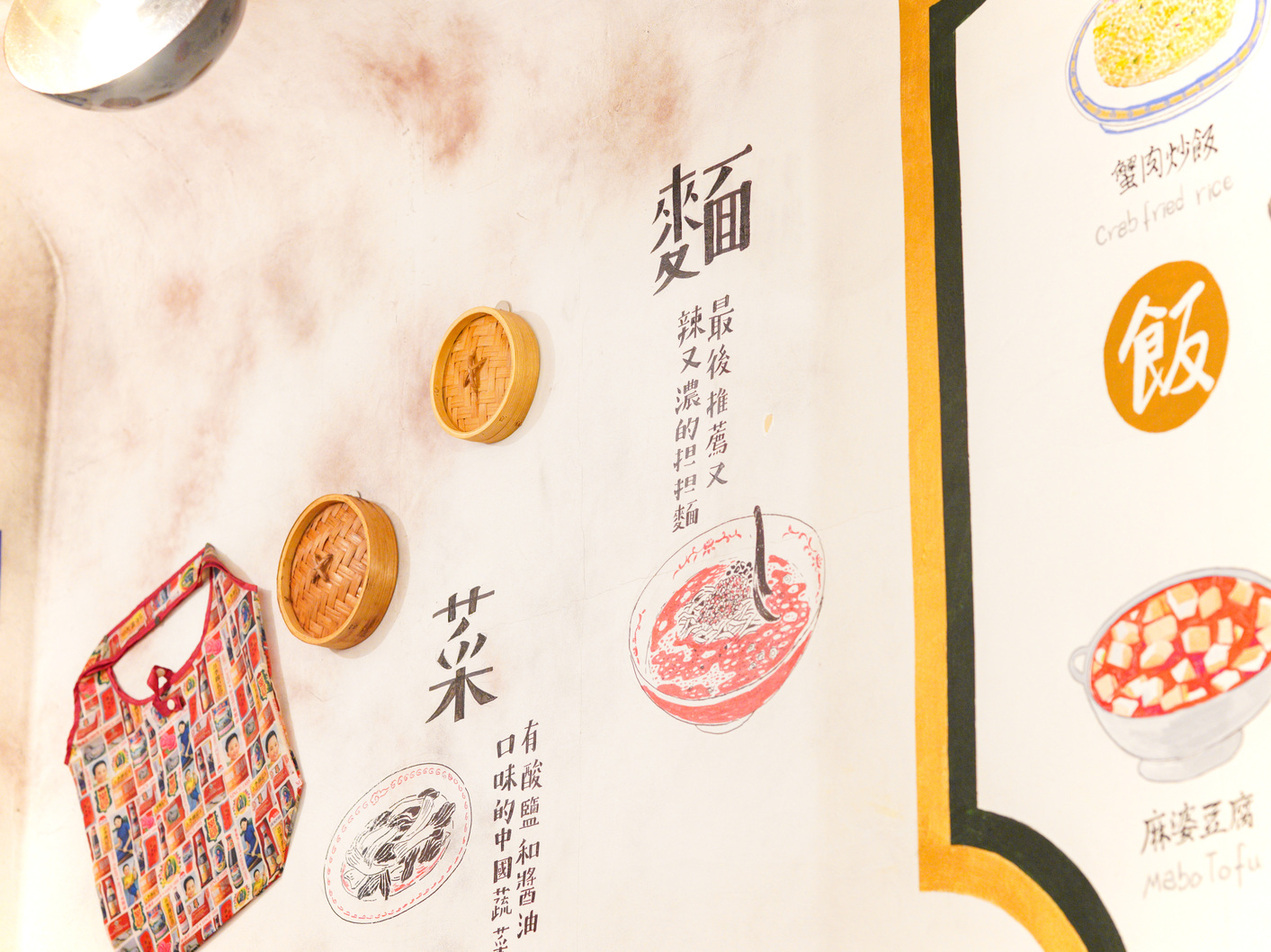 麵
最後推薦又
辣又濃的担担麵
菜
有酸鹽和醬油
口味的中國蔬菜
蟹肉炒飯
Crab fried rice
飯
麻婆豆腐
Mabo Tofu